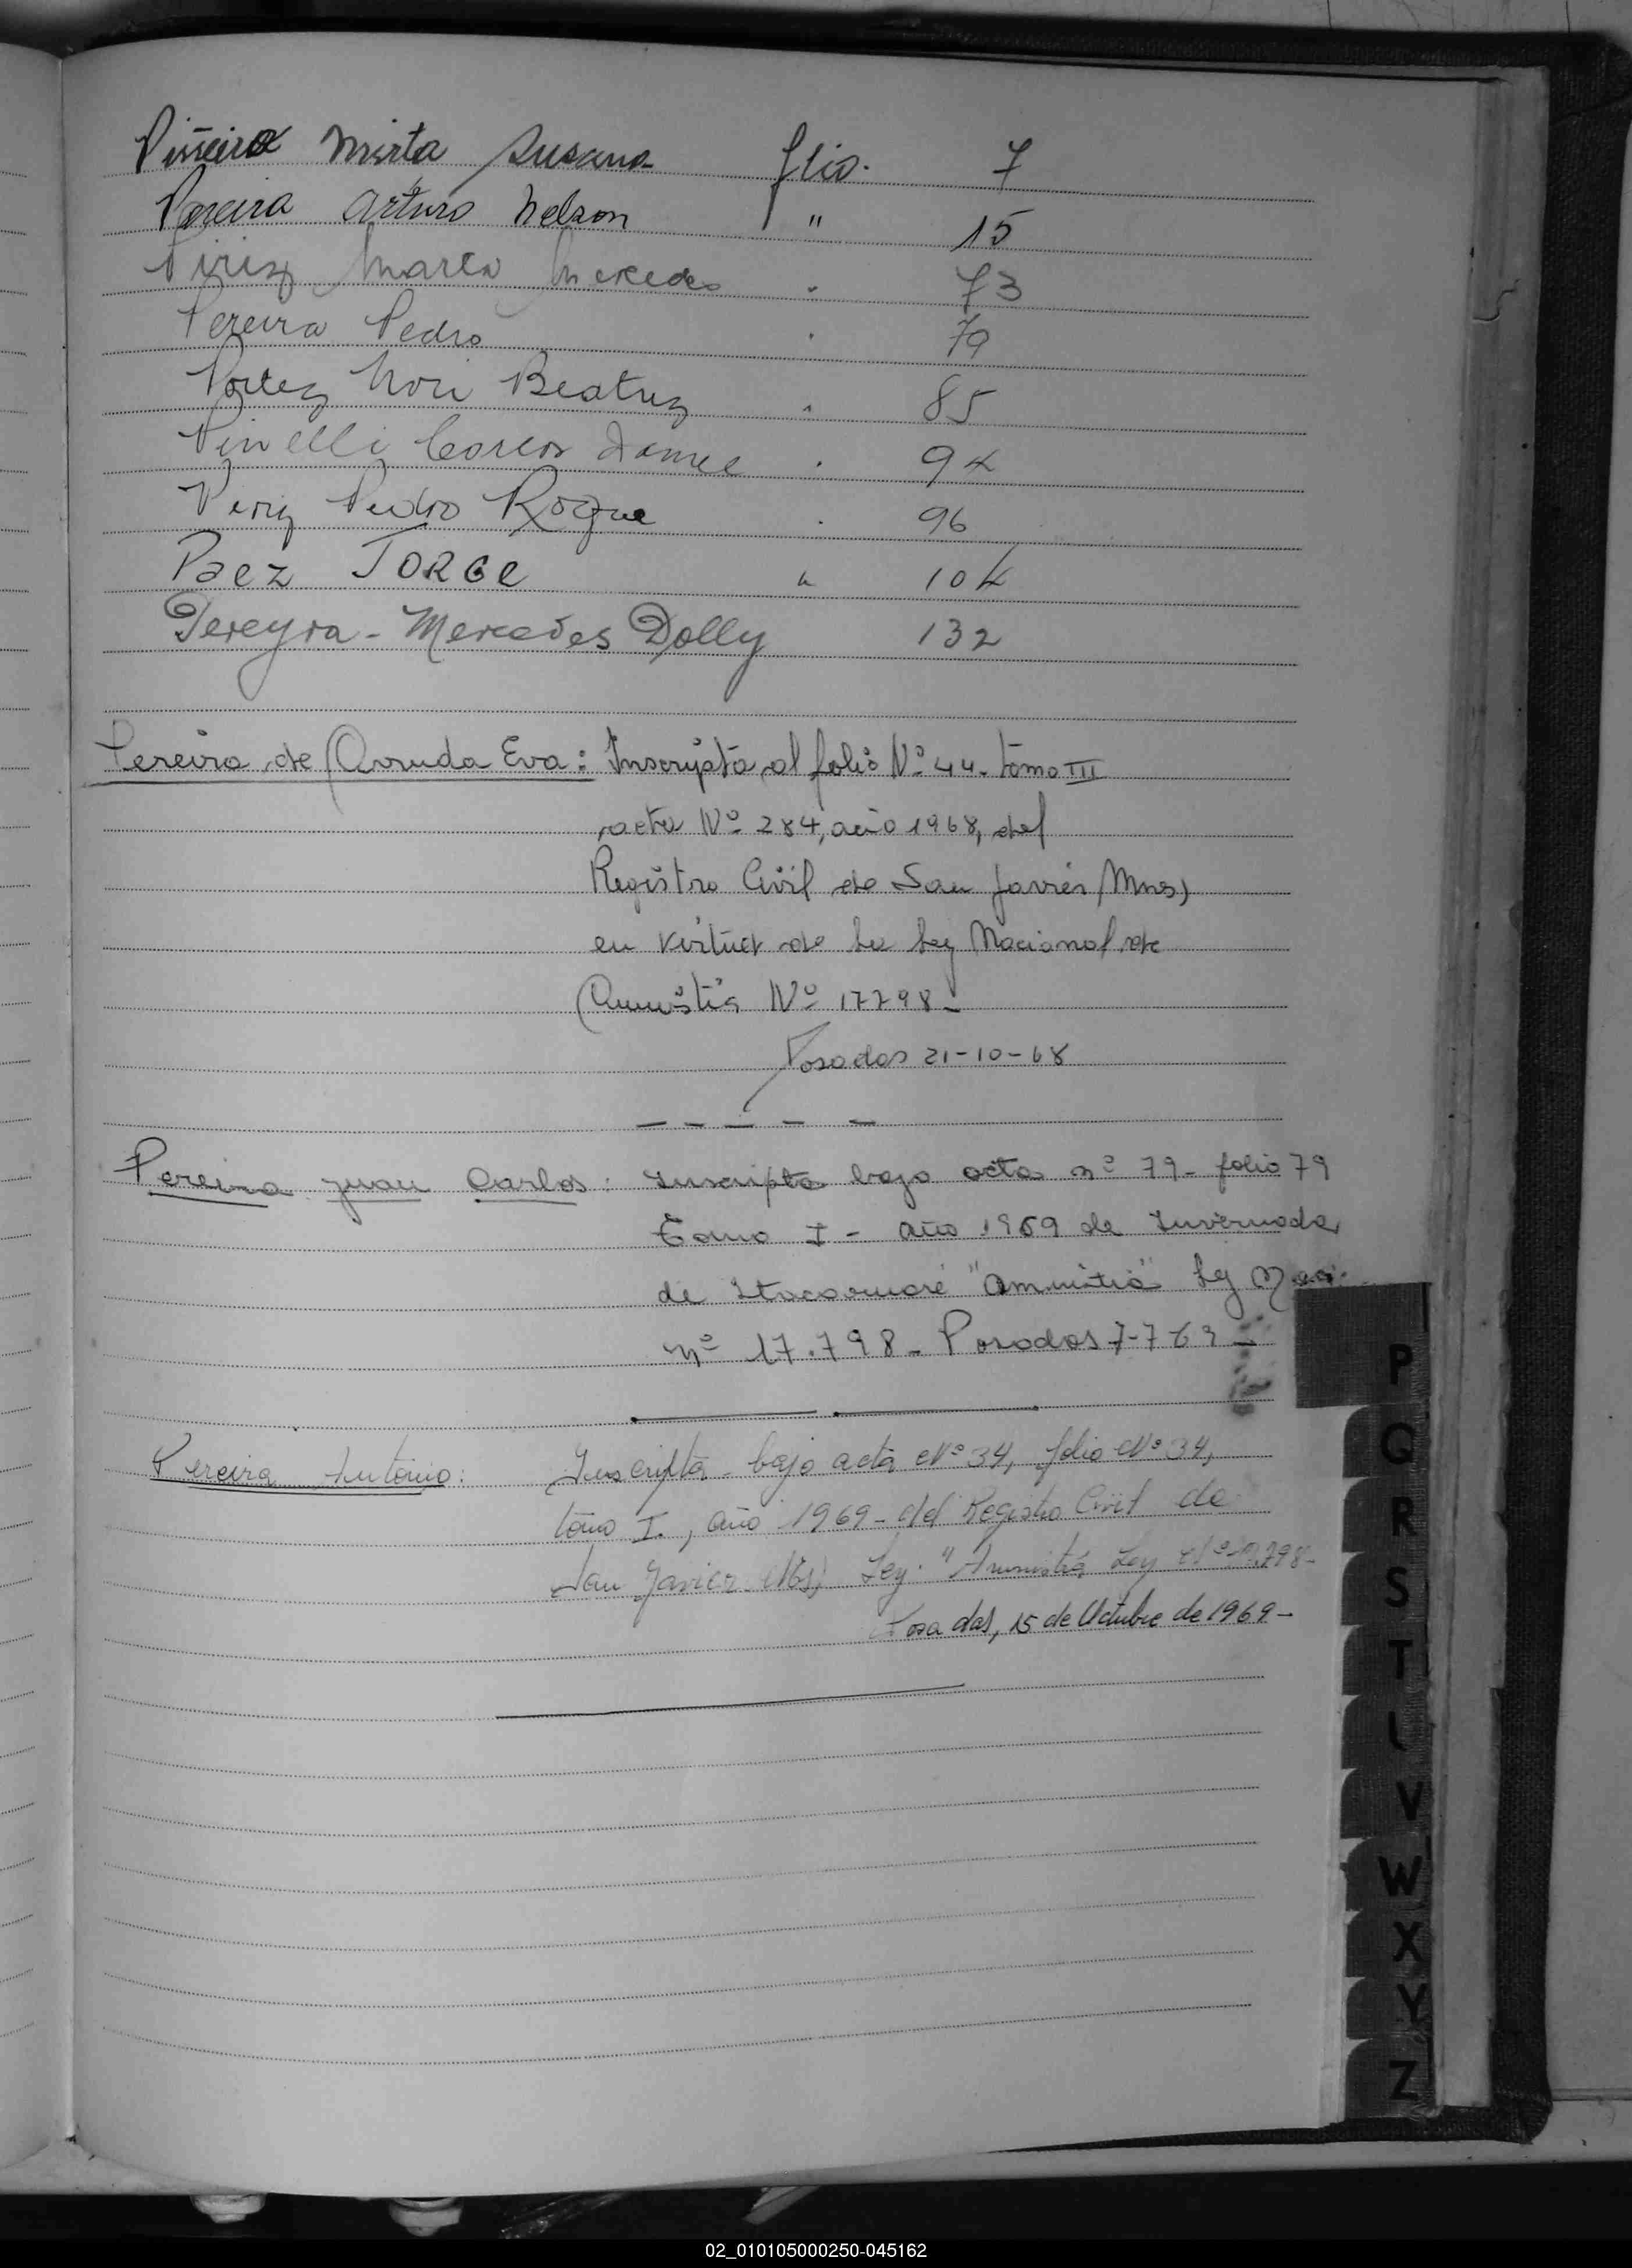 Piñeiro Mirta Susana flio. 7
Pereira Arturo Nelson " 15
Piriz Marta Mercedes " 73
Pereira Pedro " 79
Portez Nori Beatriz " 85
Pinelli Carlos Daniel " 94
Piriz Pedro Roque " 96
Paez JORGE " 104
Pereyra - Mercedes Dolly 132
Pereira de Arruda Eva: Inscripta al folio Nº 44. tomo III
acta Nº 284, año 1968, del
Registro Civil de San Javier (Mns)
en virtud de la Ley Nacional de
Amnistia Nº 17798-
Posadas 21-10-68
Pereira Juan Carlos: Inscripto bajo acta nº 79 - folio 79
Tomo I - año 1969 de Invernada
de Itacaruaré "amnistia" Ley
nº 17.798 - Posados 7-7 69 -
Pereira Antonio: Inscripta - bajo acta Nº 34, folio Nº 34,
tomo I., año 1969 - del Registro Civil de
San Javier Ley. "Amnistia Ley Nº 17.798-
Posadas, 15 de Octubre de 1969-
P
Q
R
S
T
V
W
X
Y
Z
02_010105000250-045162